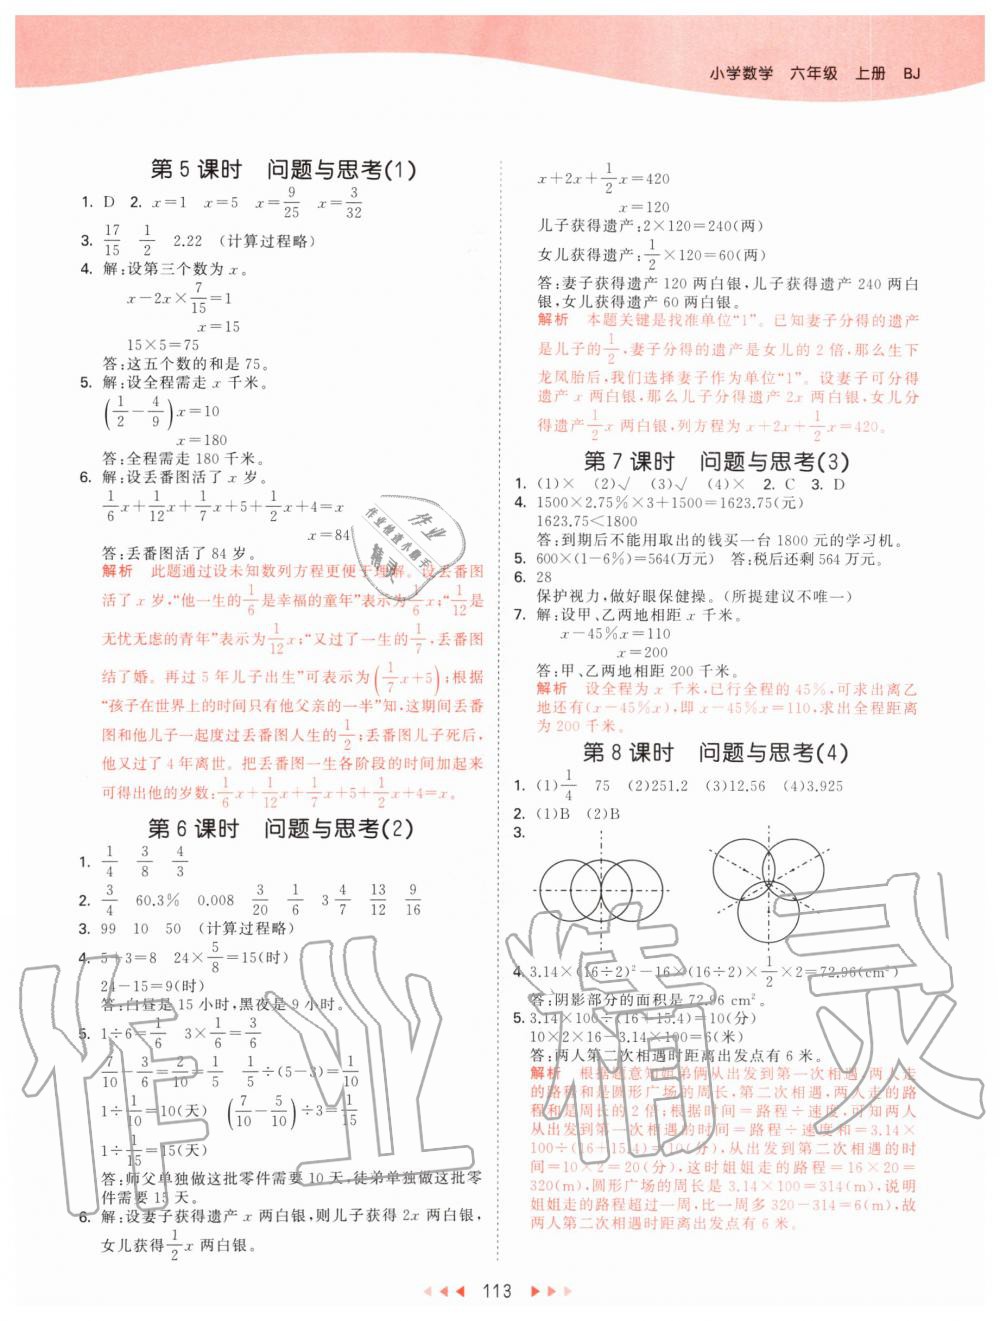 小学数学 六年级 上册 BJ
第 5 课时 问题与思考(1)
1. D 2. x=1 x=5 x=9/25 x=3/32
3. 17/15 1/2 2.22 (计算过程略)
4. 解:设第三个数为 x。
x-2x×7/15=1
x=15
15×5=75
答:这五个数的和是 75。
5. 解:设全程需走 x 千米。
(1/2-4/9)x=10
x=180
答:全程需走 180 千米。
6. 解:设丢番图活了 x 岁。
1/6x+1/12x+1/7x+5+1/2x+4=x
x=84
答:丢番图活了 84 岁。
解析 此题通过设未知数列方程更便于理解。设丢番图
活了 x 岁,“他一生的1/6是幸福的童年”表示为1/6x;“1/12是
无忧无虑的青年”表示为1/12x;“又过了一生的1/7,丢番图
结了婚。再过 5 年儿子出生”可表示为(1/7x+5);根据
“孩子在世界上的时间只有他父亲的一半”知,这期间丢番
图和他儿子一起度过丢番图人生的1/2;丢番图儿子死后,
他又过了 4 年离世。把丢番图一生各阶段的时间加起来
可得出他的岁数:1/6x+1/12x+1/7x+5+1/2x+4=x。
第 6 课时 问题与思考(2)
1. 1/4 3/8 4/3
2. 3/4 60.3% 0.008 3/20 1/6 3 4/7 13/12 9/16
3. 99 10 50 (计算过程略)
4. 5+3=8 24×5/8=15(时)
24-15=9(时)
答:白昼是 15 小时,黑夜是 9 小时。
5. 1÷6=1/6 3×1/6=3/6
7/10-3/6=2/10=1/5 1/5÷(5-3)=1/10
1÷1/10=10(天) (7/10-5/10)÷3=1/15
1÷1/15=15(天)
答:师父单独做这批零件需要 10 天,徒弟单独做这批
零件需要 15 天。
6. 解:设妻子获得遗产 x 两白银,则儿子获得 2x 两白银,
女儿获得1/2x 两白银。
x+2x+1/2x=420
x=120
儿子获得遗产:2×120=240(两)
女儿获得遗产:1/2×120=60(两)
答:妻子获得遗产 120 两白银,儿子获得遗产 240 两白
银,女儿获得遗产 60 两白银。
解析 本题关键是找准单位“1”。已知妻子分得的遗产
是儿子的1/2,妻子分得的遗产是女儿的 2 倍,那么生下
龙凤胎后,我们选择妻子作为单位“1”。设妻子可分得
遗产 x 两白银,那么儿子分得遗产 2x 两白银,女儿分
得遗产1/2x 两白银,列方程为 x+2x+1/2x=420。
第 7 课时 问题与思考(3)
1. (1)× (2)√ (3)√ (4)× 2. C 3. D
4. 1500×2.75%×3+1500=1623.75(元)
1623.75<1800
答:到期后不能用取出的钱买一台 1800 元的学习机。
5. 600×(1-6%)=564(万元) 答:税后还剩 564 万元。
6. 28
保护视力,做好眼保健操。(所提建议不唯一)
7. 解:设甲、乙两地相距 x 千米。
x-45%x=110
x=200
答:甲、乙两地相距 200 千米。
解析 设全程为 x 千米,已行全程的 45%,可求出离乙
地还有(x-45%x),即 x-45%x=110,求出全程距离
为 200 千米。
第 8 课时 问题与思考(4)
1. (1)1/4 75 (2)251.2 (3)12.56 (4)3.925
2. (1)B (2)B
3.
4. 3.14×(16÷2)²-16×(16÷2)×1/2×2=72.96(cm²)
答:阴影部分的面积是 72.96 cm²。
5. 3.14×100÷(16+15.4)=10(分)
10×2×16-3.14×100=6(米)
答:两人第二次相遇时距离出发点有 6 米。
解析 根据题意知姐弟俩从出发到第一次相遇,两人走
的路程和是圆形广场的周长,第二次相遇,两人走的路
程和是周长的 2 倍;根据时间=路程÷速度,可知两人
从出发到第一次相遇的时间=路程÷速度和=3.14×
100÷(16+15.4)=10(分),从出发到第二次相遇的时
间=10×2=20(分),这时姐姐走的路程=16×20=
320(m),圆形广场的周长是 3.14×100=314(m),说明
姐姐走的路程超过一周,比一周多 320-314=6(m),故
两人第二次相遇时距离出发点有 6 米。
作业精灵
113